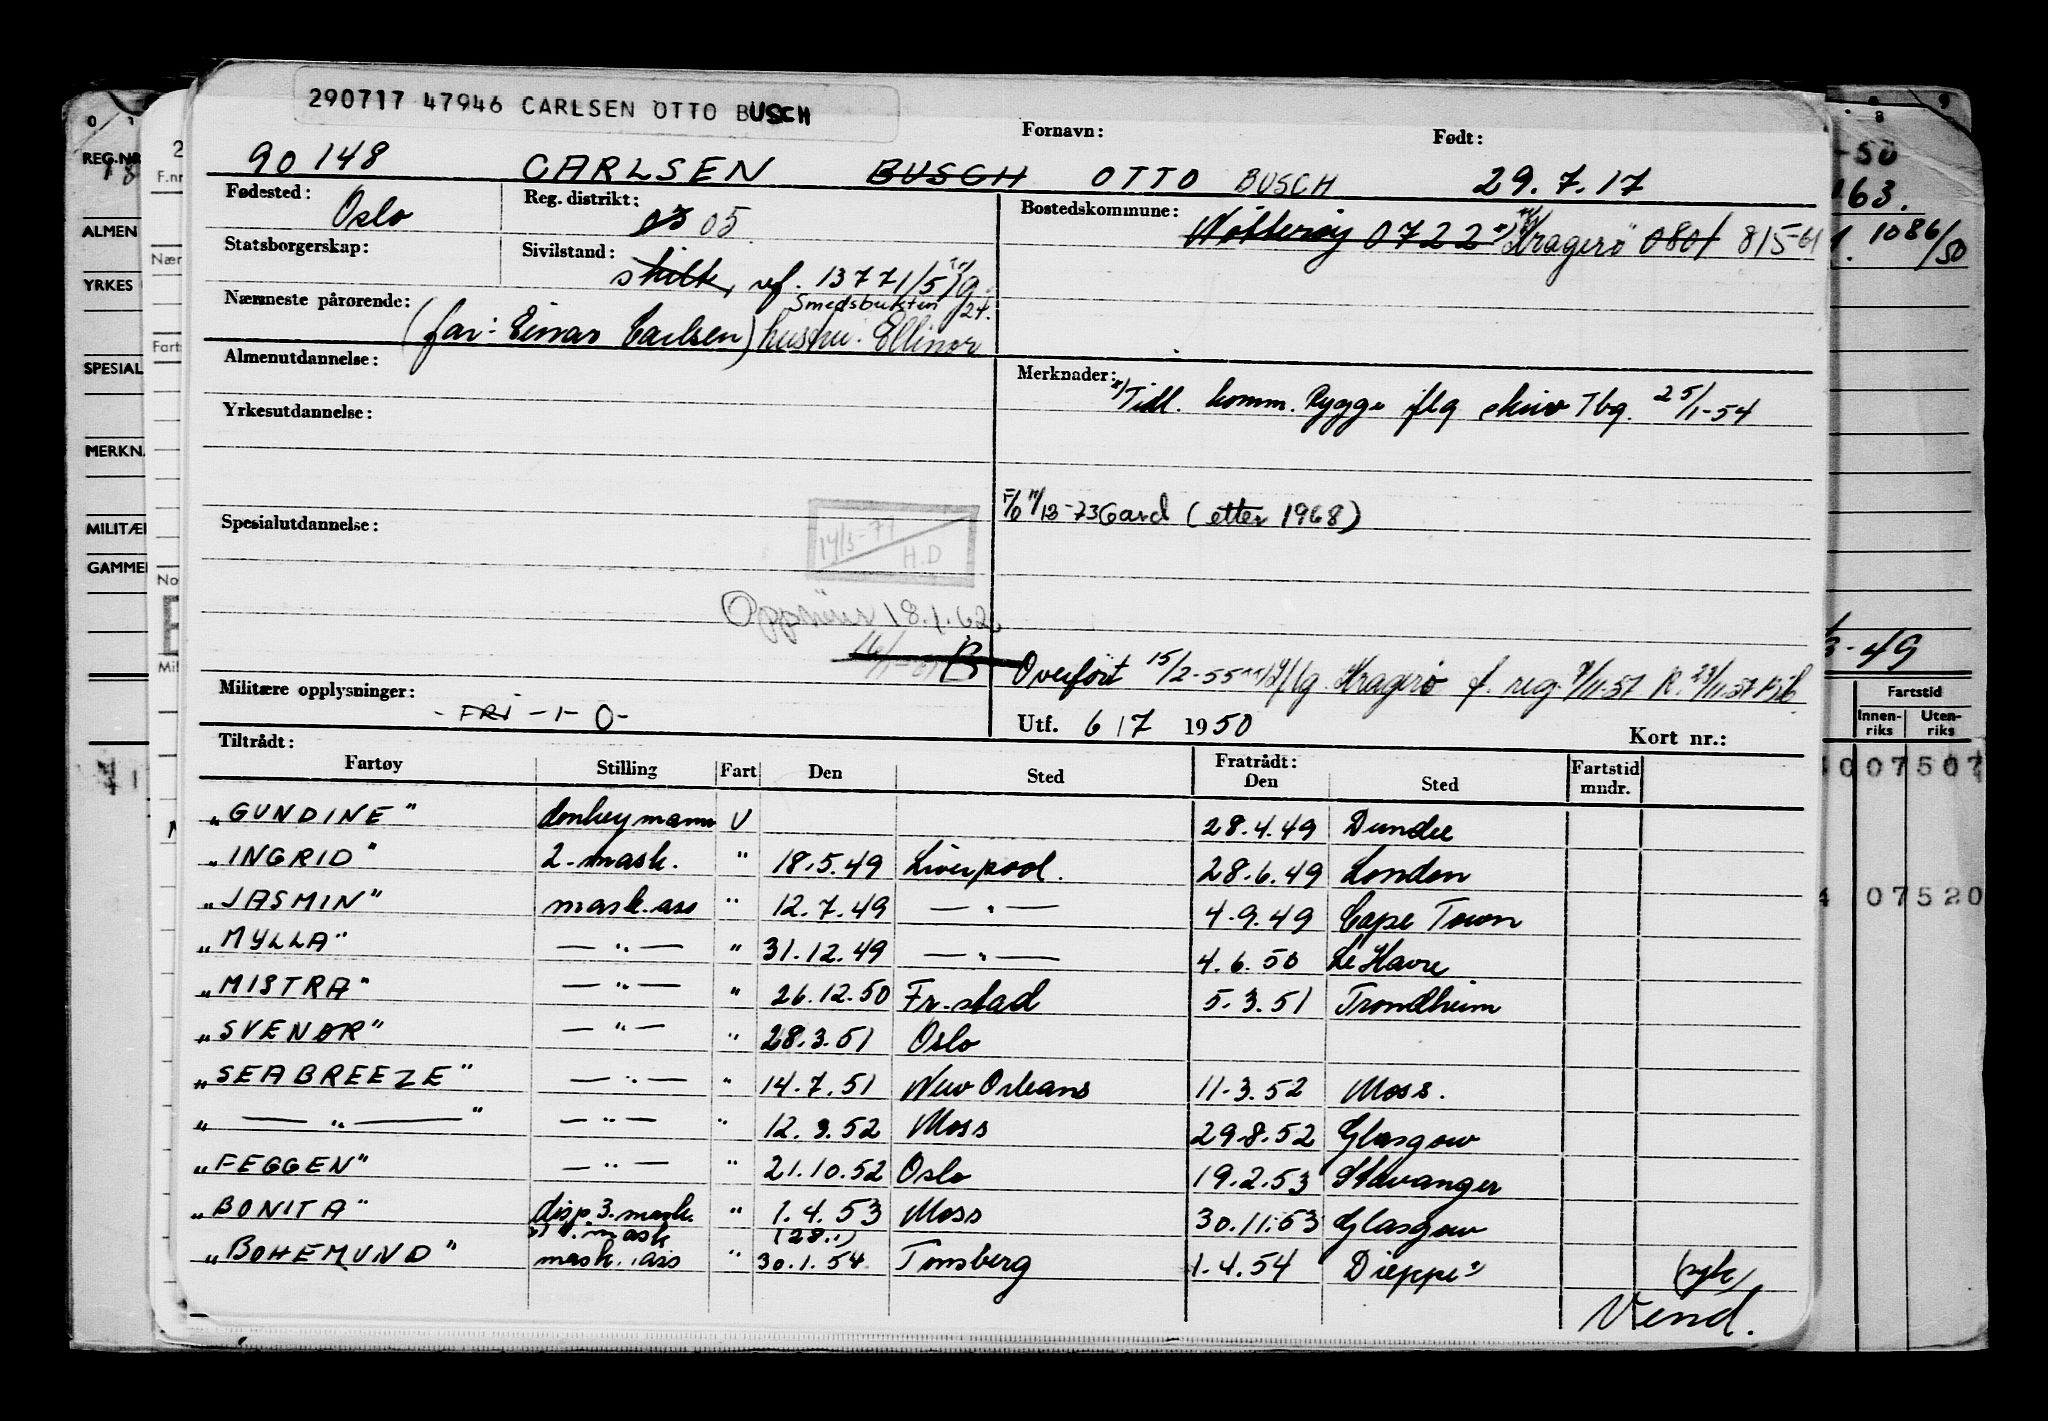 290717 47946 CARLSEN OTTO BUSCH
Fornavn: Født:
90148 CARLSEN BUSCH OTTO BUSCH 29.7.17
Fødested: Oslo Reg. distrikt: 03 05 Bostedskommune: Nøtterøy 0722 Kragerö 0801 815-61
Statsborgerskap: Sivilstand: skilt, ref. 13771/51
Nærmeste pårørende: (far: Einar Carlsen) hustru Ellinor
Smedsbukten 24.
Almenutdannelse: Merknader: Tidl. komm. Rygge flg skriv Tbg. 25/1-54
Yrkesutdannelse:
F/O 11/12-73 Gard (etter 1968)
Spesialutdannelse:
14/3-77
H.D
18.1.62
Overført 15/2-55 flg. Kragerø f. reg. 9/11-57 R. 23/11-57
Militære opplysninger: - FRI - 1 - 0 -
Utf. 6/7 1950 Kort nr.:
Tiltrådt: Fratrådt:
Fartøy Stilling Fart Den Sted Den Sted Fartstid mndr.
"GUNDINE" donkeymann V 28.4.49 Dundee
"INGRID" 2. mask. " 18.5.49 Liverpool. 28.6.49 London
"JASMIN" mask. ass " 12.7.49 — " — 4.9.49 Cape Town
"MYLLA" — " — " 31.12.49 — " — 4.6.50 Le Havre
"MISTRA" — " — " 26.12.50 Fr.stad 5.3.51 Trondheim
"SVENØR" — " — " 28.3.51 Oslo
"SEABREEZE" — " — " 14.7.51 New Orleans 11.3.52 Moss.
" — " — " — " — " 12.3.52 Moss 29.8.52 Glasgow
"FEGGEN" — " — " 21.10.52 Oslo 19.2.53 Stavanger
"BONITA" disp. 3. mask. " 1.4.53 Moss 30.11.53 Glasgow
mask (28.1)
"BOHEMUND" mask. ass " 30.1.54 Tønsberg 1.4.54 Dieppe (syk)
Vend.
REG.NR
18
ALMEN
YRKES
SPESIAL
MERKN.
MILITÆR
GAMMEL
F.nr
Nær
Farts
No
Mil
8 9
-50
63.
1086/50
3-49
Fartstid
Innen-riks Uten-riks
4007507
4 07520